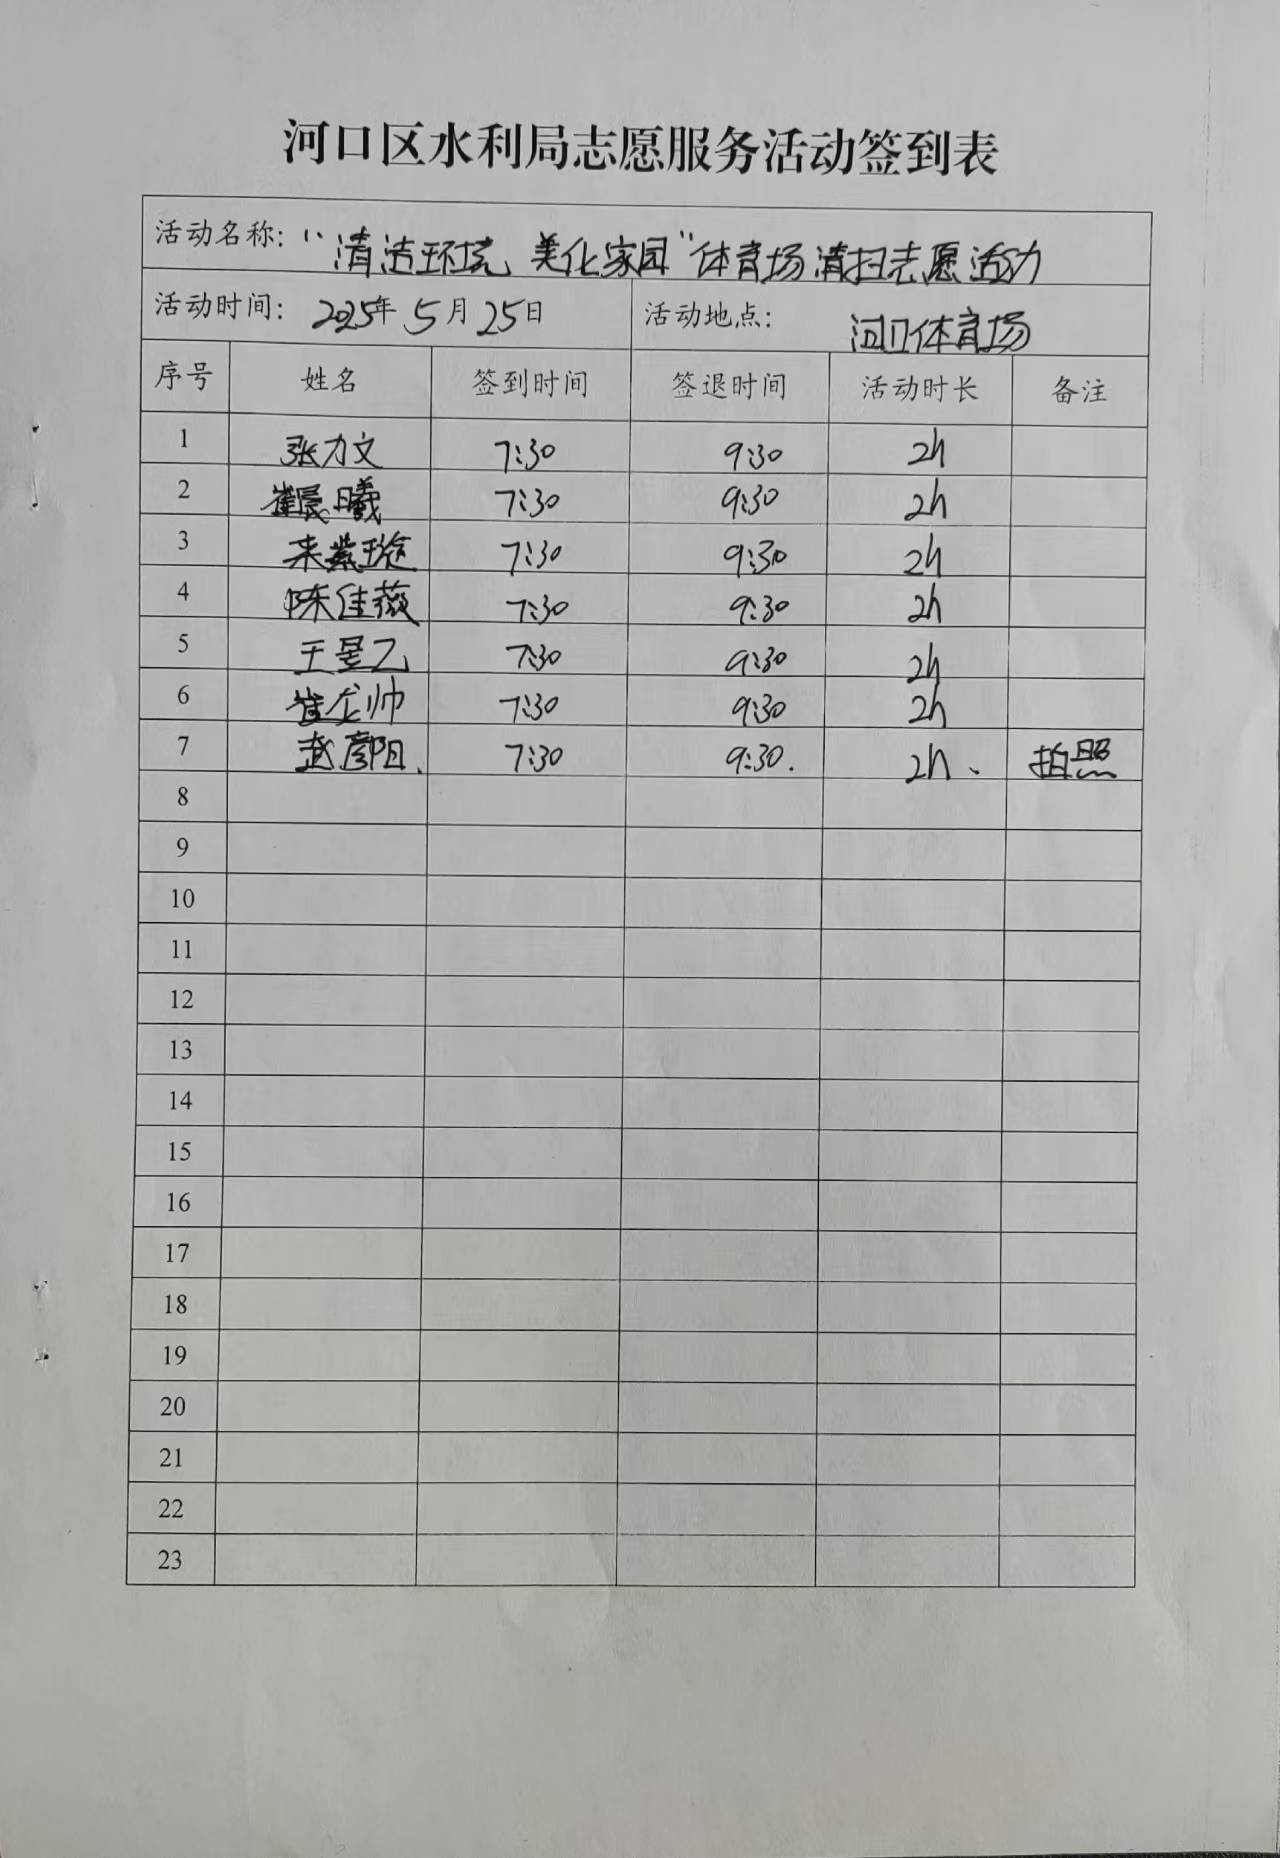 河口区水利局志愿服务活动签到表
活动名称：“清洁环境，美化家园”体育场清扫志愿活动
活动时间：2025年5月25日 活动地点：河口体育场
序号 姓名 签到时间 签退时间 活动时长 备注
1 张力文 7:30 9:30 2h
2 崔晨曦 7:30 9:30 2h
3 7:30 9:30 2h
4 陈佳薇 7:30 9:30 2h
5 王昱乙 7:30 9:30 2h
6 崔龙帅 7:30 9:30 2h
7 7:30 9:30. 2h、 拍照
8
9
10
11
12
13
14
15
16
17
18
19
20
21
22
23